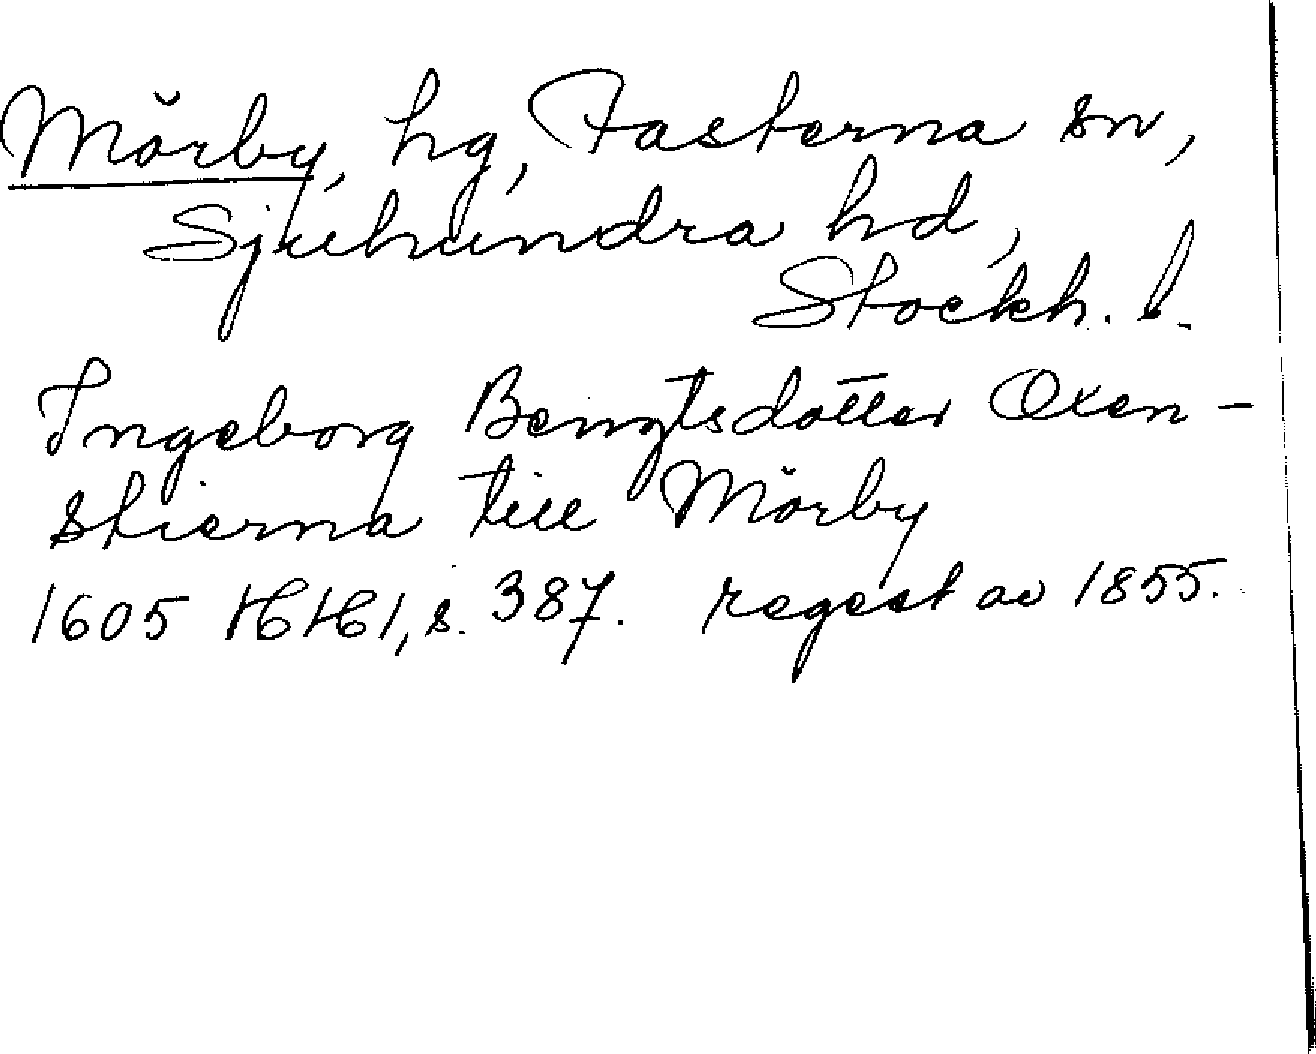 Mörby, hg, Fasterna sn,
Sjuhundra hd,
Stockh. l.
Ingeborg Bengtsdotter Oxen-
stierna till Mörby
1605 HH 1, s. 387. regest av 1855.